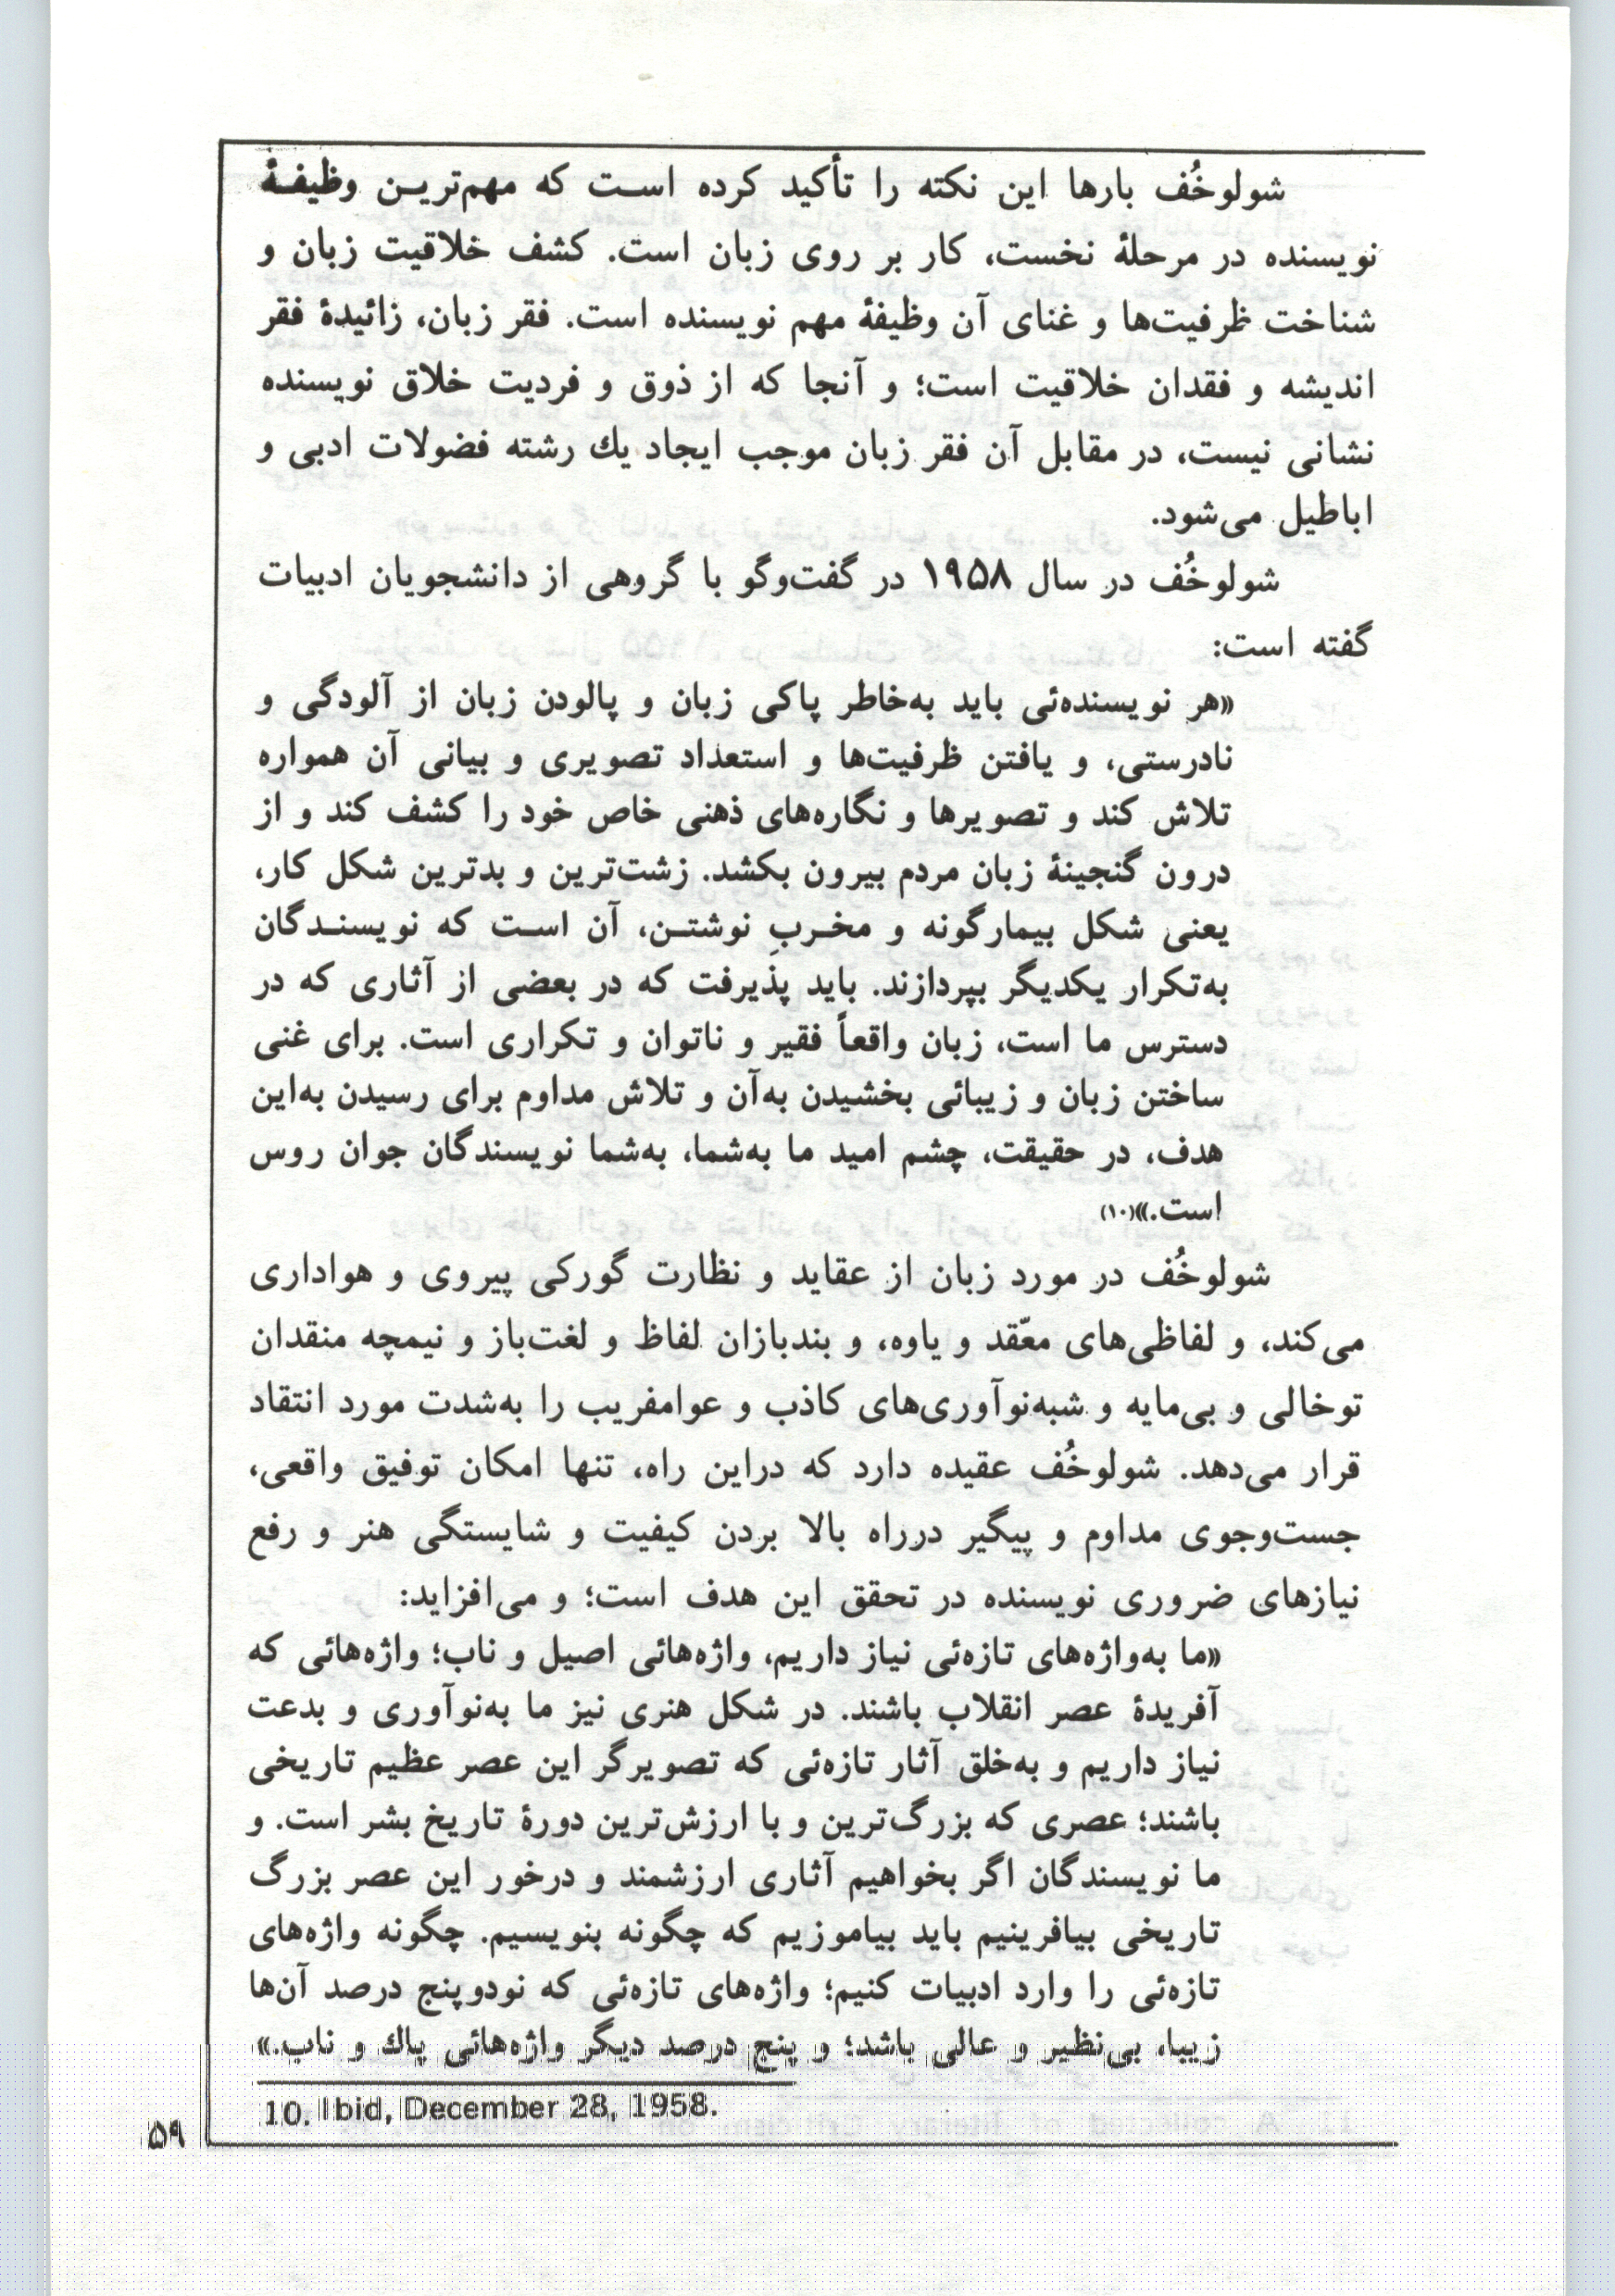 شولوخُف بارها این نکته را تأکید کرده است که مهم‌ترین وظیفهٔ
نویسنده در مرحلهٔ نخست، کار بر روی زبان است. کشف خلاقیت زبان و
شناخت ظرفیت‌ها و غنای آن وظیفهٔ مهم نویسنده است. فقر زبان، زائیدهٔ فقر
اندیشه و فقدان خلاقیت است؛ و آنجا که از ذوق و فردیت خلاق نویسنده
نشانی نیست، در مقابل آن فقر زبان موجب ایجاد یك رشته فضولات ادبی و
اباطیل می‌شود.
شولوخُف در سال ۱۹۵۸ در گفت‌وگو با گروهی از دانشجویان ادبیات
گفته است:
«هر نویسنده‌ئی باید به‌خاطر پاکی زبان و پالودن زبان از آلودگی و
نادرستی، و یافتن ظرفیت‌ها و استعداد تصویری و بیانی آن همواره
تلاش کند و تصویرها و نگاره‌های ذهنی خاص خود را کشف کند و از
درون گنجینهٔ زبان مردم بیرون بکشد. زشت‌ترین و بدترین شکل کار،
یعنی شکل بیمارگونه و مخربِ نوشتن، آن است که نویسندگان
به‌تکرار یکدیگر بپردازند. باید پذیرفت که در بعضی از آثاری که در
دسترس ما است، زبان واقعاً فقیر و ناتوان و تکراری است. برای غنی
ساختن زبان و زیبائی بخشیدن به‌آن و تلاش مداوم برای رسیدن به‌این
هدف، در حقیقت، چشم امید ما به‌شما، به‌شما نویسندگان جوان روس
است.»(۱۰)
شولوخُف در مورد زبان از عقاید و نظارت گورکی پیروی و هواداری
می‌کند، و لفاظی‌های معّقد و یاوه، و بندبازان لفاظ و لغت‌باز و نیمچه منقدان
توخالی و بی‌مایه و شبه‌نوآوری‌های کاذب و عوامفریب را به‌شدت مورد انتقاد
قرار می‌دهد. شولوخُف عقیده دارد که دراین راه، تنها امکان توفیق واقعی،
جست‌وجوی مداوم و پیگیر درراه بالا بردن کیفیت و شایستگی هنر و رفع
نیازهای ضروری نویسنده در تحقق این هدف است؛ و می‌افزاید:
«ما به‌واژه‌های تازه‌ئی نیاز داریم، واژه‌هائی اصیل و ناب؛ واژه‌هائی که
آفریدهٔ عصر انقلاب باشند. در شکل هنری نیز ما به‌نوآوری و بدعت
نیاز داریم و به‌خلق آثار تازه‌ئی که تصویرگر این عصر عظیم تاریخی
باشند؛ عصری که بزرگ‌ترین و با ارزش‌ترین دورهٔ تاریخ بشر است. و
ما نویسندگان اگر بخواهیم آثاری ارزشمند و درخور این عصر بزرگ
تاریخی بیافرینیم باید بیاموزیم که چگونه بنویسیم. چگونه واژه‌های
تازه‌ئی را وارد ادبیات کنیم؛ واژه‌های تازه‌ئی که نودوپنج درصد آن‌ها
زیبا، بی‌نظیر و عالی باشد؛ و پنج درصد دیگر واژه‌هائی پاك و ناب.»
10. Ibid, December 28, 1958.
۵۹